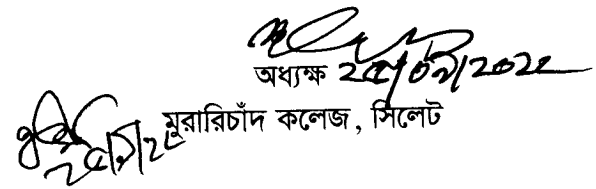 অধ্যক্ষ ২৫/০৯/২০২২
মুরারিচাঁদ কলেজ, সিলেট